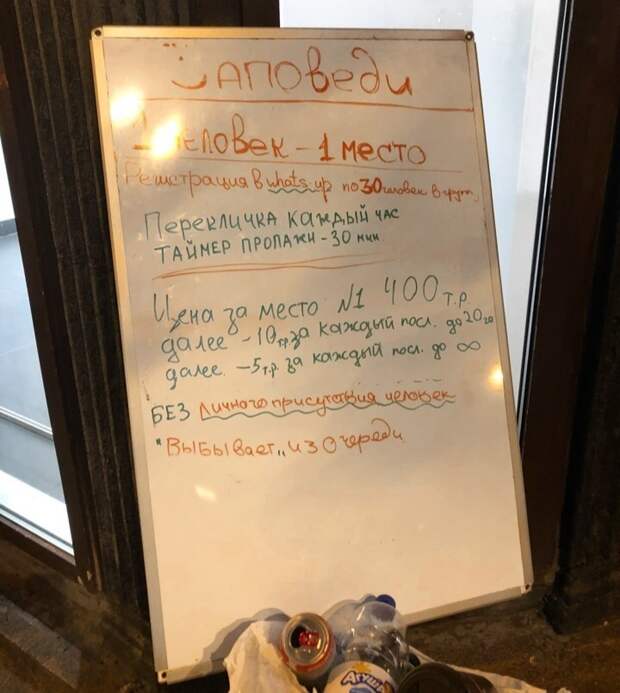 Заповеди
1 человек - 1 место
Регистрация в whats up по 30 человек в груп.
Перекличка каждый час
Таймер пропажи - 30 мин
Цена за место №1 400 т.р.
далее - 10 т.р. за каждый посл. до 20 го
далее - 5 т.р. за каждый посл. до ∞
БЕЗ личного присутствия человек
"Выбывает" из очереди
Агуша